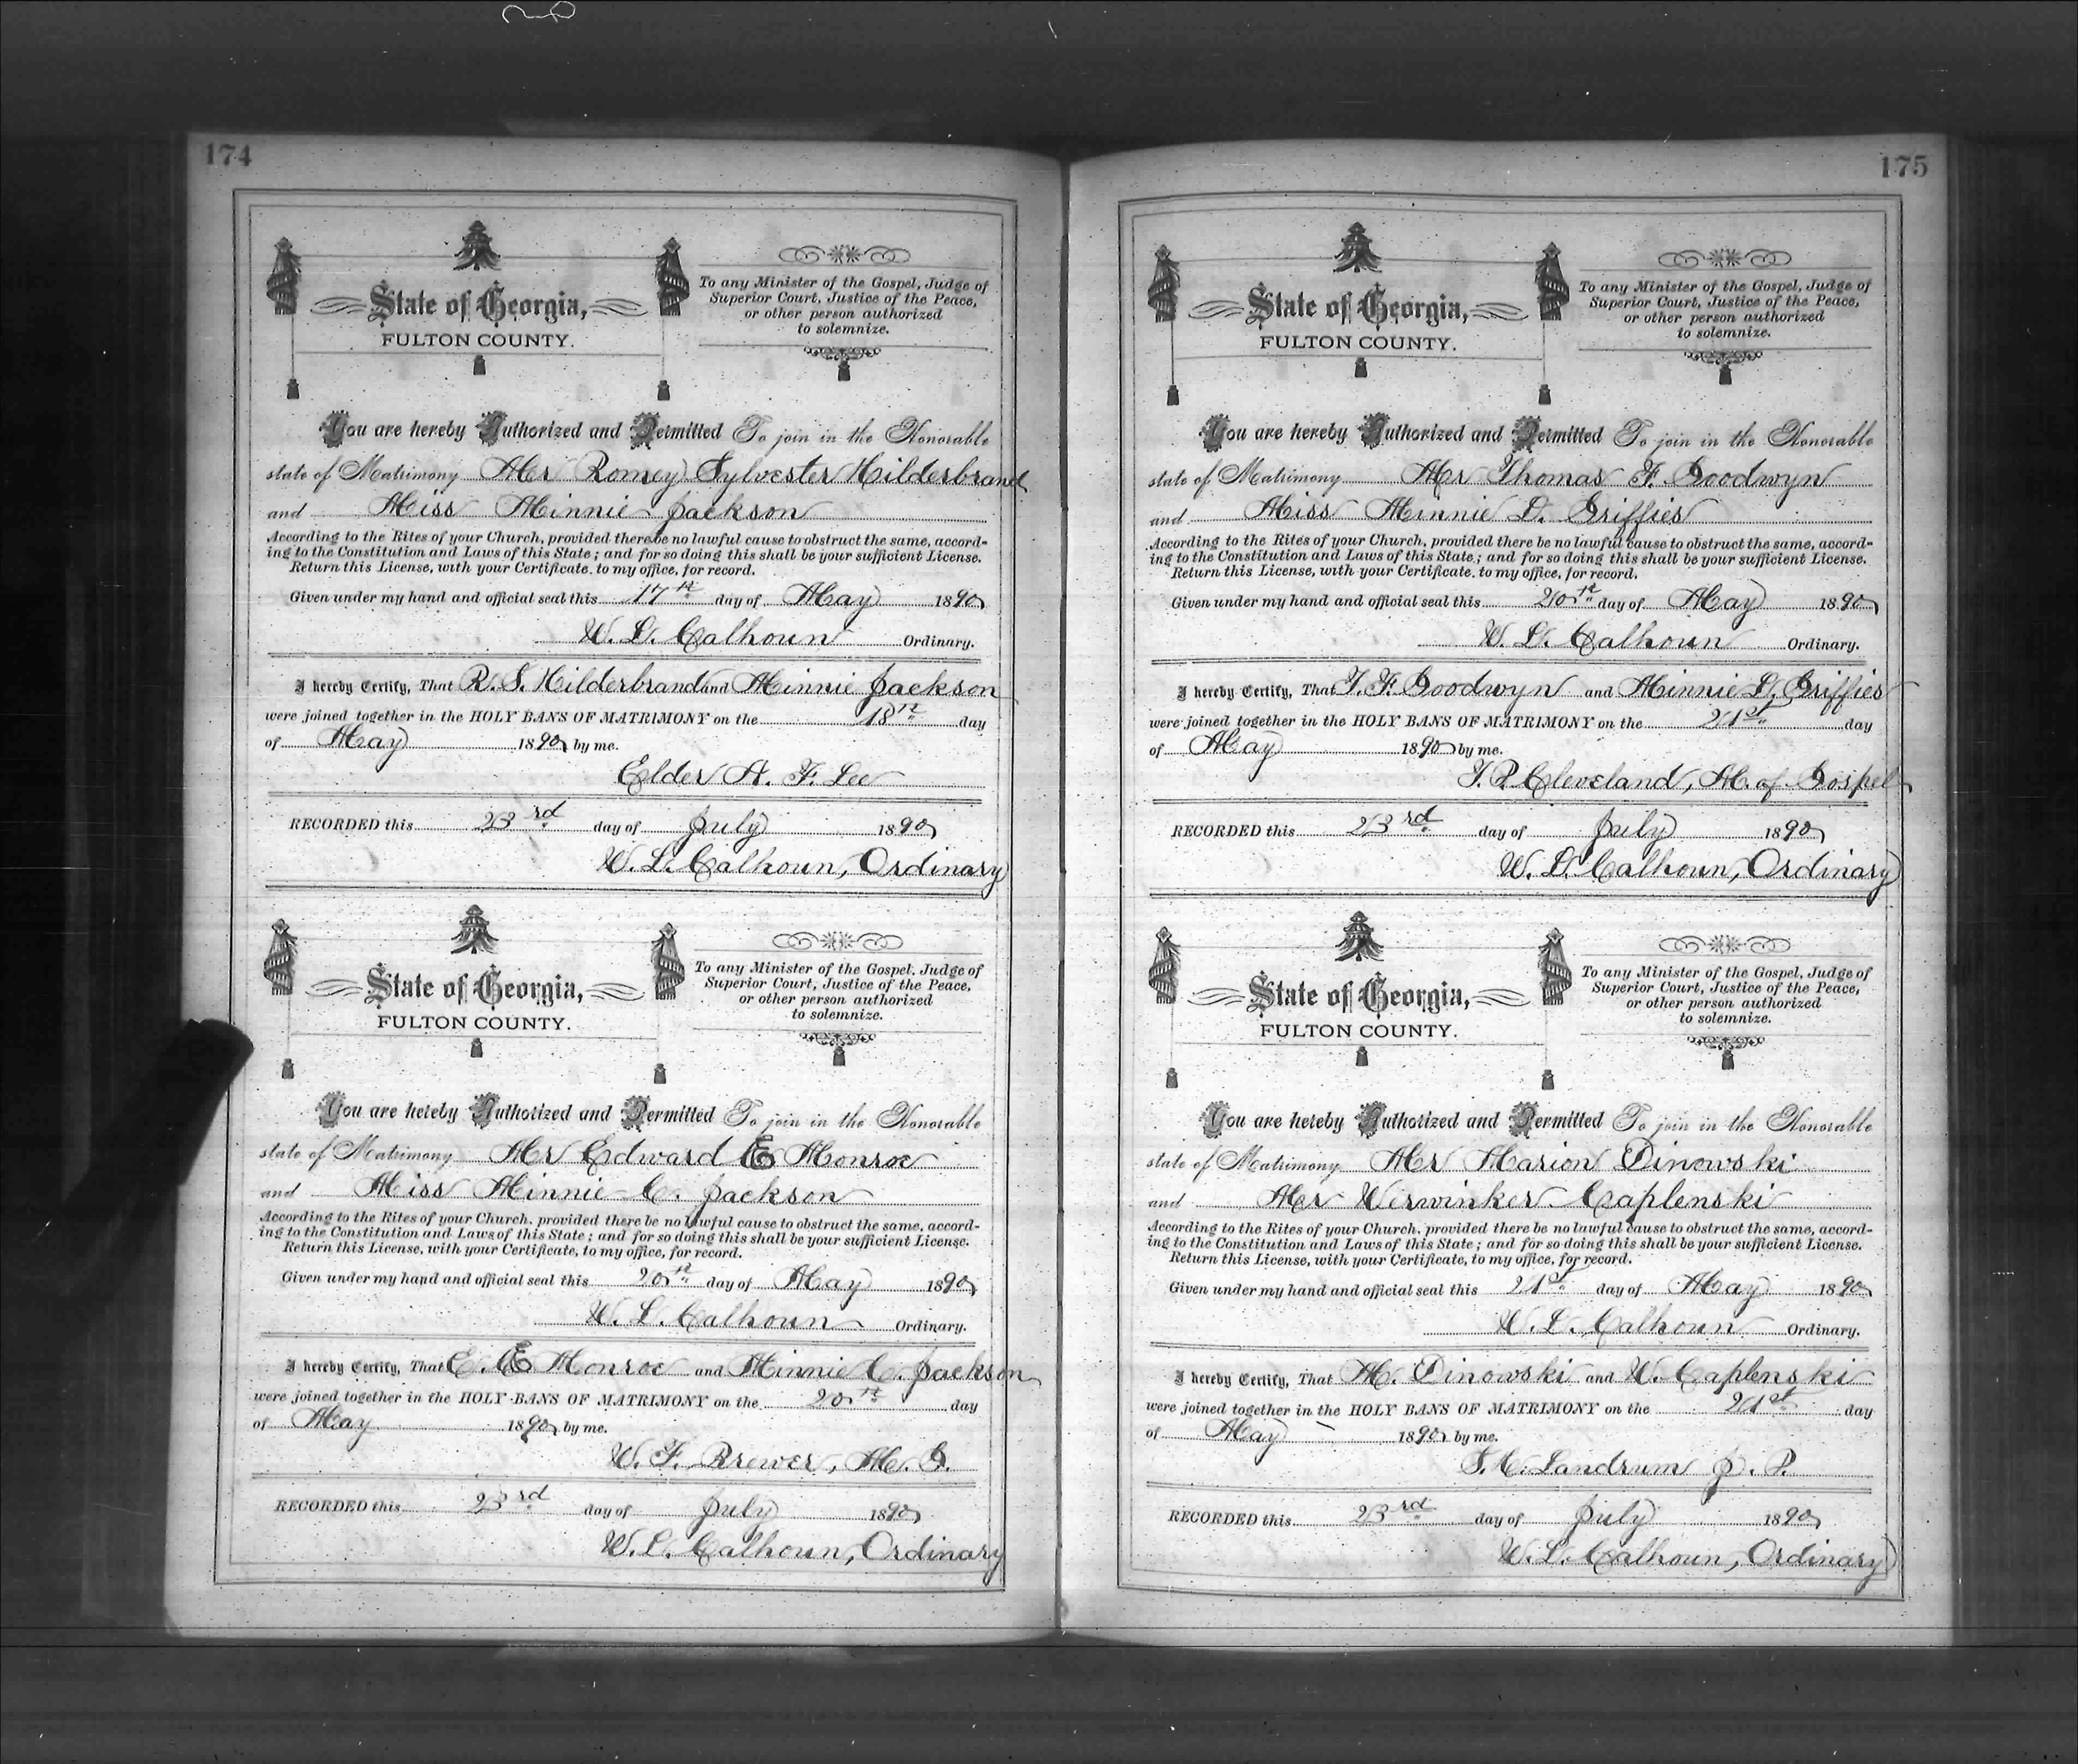 174
State of Georgia,
FULTON COUNTY.
To any Minister of the Gospel, Judge of
Superior Court, Justice of the Peace,
or other person authorized
to solemnize.
You are hereby Authorized and Permitted To join in the Honorable
state of Matrimony Mr Romey Sylvester Hilderbrand
and Miss Minnie Jackson
According to the Rites of your Church, provided there be no lawful cause to obstruct the same, accord-
ing to the Constitution and Laws of this State; and for so doing this shall be your sufficient License.
Return this License, with your Certificate, to my office, for record.
Given under my hand and official seal this 17th day of May 1890
W. L. Calhoun Ordinary.
I hereby Certify, That R. S. Hilderbrand and Minnie Jackson
were joined together in the HOLY BANS OF MATRIMONY on the 18th day
of May 1890 by me.
Elder A. F. Lee
RECORDED this 23rd day of July 1890
W. L. Calhoun, Ordinary
State of Georgia,
FULTON COUNTY.
To any Minister of the Gospel, Judge of
Superior Court, Justice of the Peace,
or other person authorized
to solemnize.
You are hereby Authorized and Permitted To join in the Honorable
state of Matrimony Mr Edward E Monroe
and Miss Minnie C. Jackson
According to the Rites of your Church, provided there be no lawful cause to obstruct the same, accord-
ing to the Constitution and Laws of this State; and for so doing this shall be your sufficient License.
Return this License, with your Certificate, to my office, for record.
Given under my hand and official seal this 20th day of May 1890
W. L. Calhoun Ordinary.
I hereby Certify, That E. E Monroe and Minnie C. Jackson
were joined together in the HOLY BANS OF MATRIMONY on the 20th day
of May 1890 by me.
W. F. Brewer, M. G.
RECORDED this 23rd day of July 1890
W. L. Calhoun, Ordinary
175
State of Georgia,
FULTON COUNTY.
To any Minister of the Gospel, Judge of
Superior Court, Justice of the Peace,
or other person authorized
to solemnize.
You are hereby Authorized and Permitted To join in the Honorable
state of Matrimony Mr Thomas F. Goodwyn
and Miss Minnie L. Griffies
According to the Rites of your Church, provided there be no lawful cause to obstruct the same, accord-
ing to the Constitution and Laws of this State; and for so doing this shall be your sufficient License.
Return this License, with your Certificate, to my office, for record.
Given under my hand and official seal this 20th day of May 1890
W. L. Calhoun Ordinary.
I hereby Certify, That T. F. Goodwyn and Minnie L. Griffies
were joined together in the HOLY BANS OF MATRIMONY on the 21st day
of May 1890 by me.
T. P. Cleveland, M. of Gospel
RECORDED this 23rd day of July 1890
W. L. Calhoun, Ordinary
State of Georgia,
FULTON COUNTY.
To any Minister of the Gospel, Judge of
Superior Court, Justice of the Peace,
or other person authorized
to solemnize.
You are hereby Authorized and Permitted To join in the Honorable
state of Matrimony Mr Marion Dinowski
and Mr Werwinker Caplenski
According to the Rites of your Church, provided there be no lawful cause to obstruct the same, accord-
ing to the Constitution and Laws of this State; and for so doing this shall be your sufficient License.
Return this License, with your Certificate, to my office, for record.
Given under my hand and official seal this 21st day of May 1890
W. L. Calhoun Ordinary.
I hereby Certify, That M. Dinowski and W. Caplenski
were joined together in the HOLY BANS OF MATRIMONY on the 21st day
of May 1890 by me.
S. C. Landrum J. P.
RECORDED this 23rd day of July 1890
W. L. Calhoun, Ordinary